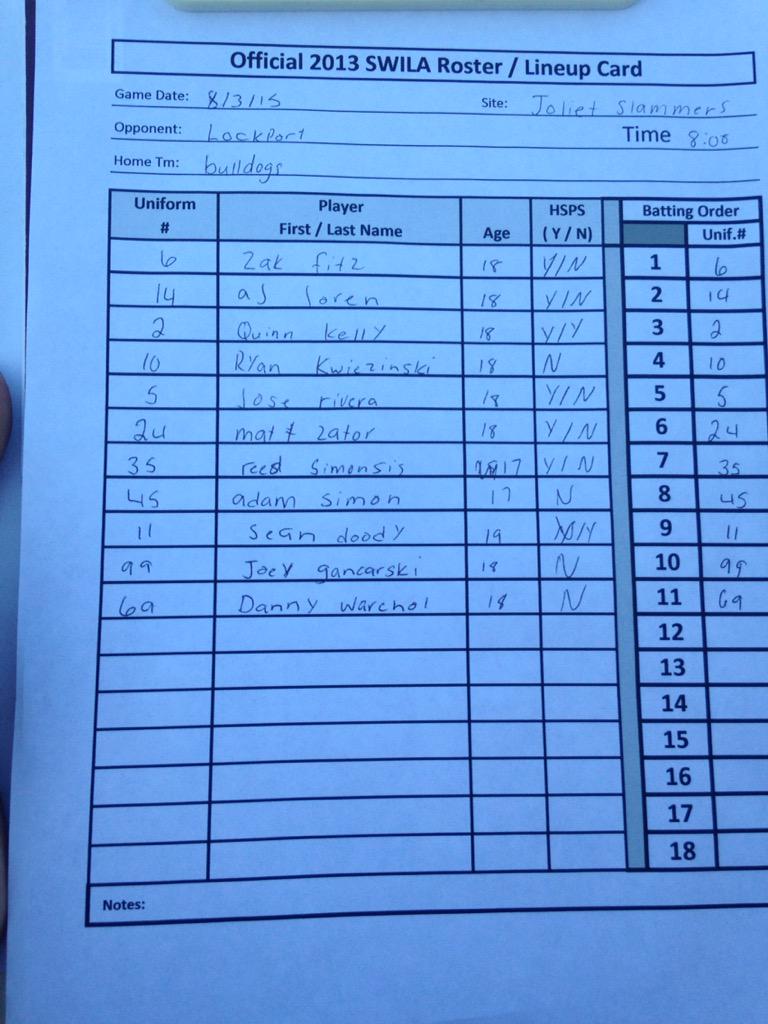 Official 2013 SWILA Roster / Lineup Card
Game Date: 8/3/15 Site: Joliet Slammers
Opponent: Lockport Time 8:00
Home Tm: bulldogs
Uniform # Player First / Last Name Age HSPS (Y / N) Batting Order Unif.#
6 Zak fitz 18 Y/N 1 6
14 aJ loren 18 Y/N 2 14
2 Quinn Kelly 18 Y/Y 3 2
10 Ryan Kwiczinski 18 N 4 10
5 Jose rivera 18 Y/N 5 5
24 matt zator 18 Y/N 6 24
35 reed Simonsis 17 Y/N 7 35
45 adam Simon 17 N 8 45
11 Sean doody 19 9 11
99 Joey gancarski 18 N 10 99
69 Danny Warchol 18 N 11 69
12
13
14
15
16
17
18
Notes: